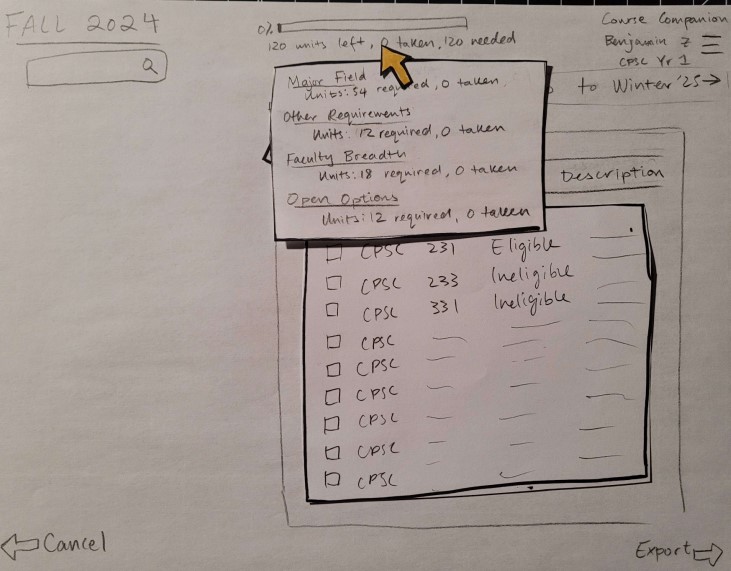 FALL 2024
0%
120 units left, 0 taken, 120 needed
Course Companion
Benjamin Z
CPSC Yr 1
to Winter '25
Major Field
Units: 54 required, 0 taken
Other Requirements
Units: 12 required, 0 taken
Faculty Breadth
Units: 18 required, 0 taken
Open Options
Units: 12 required, 0 taken
Description
CPSC 231 Eligible
CPSC 233 Ineligible
CPSC 331 Ineligible
CPSC
CPSC
CPSC
CPSC
CPSC
CPSC
Cancel
Export